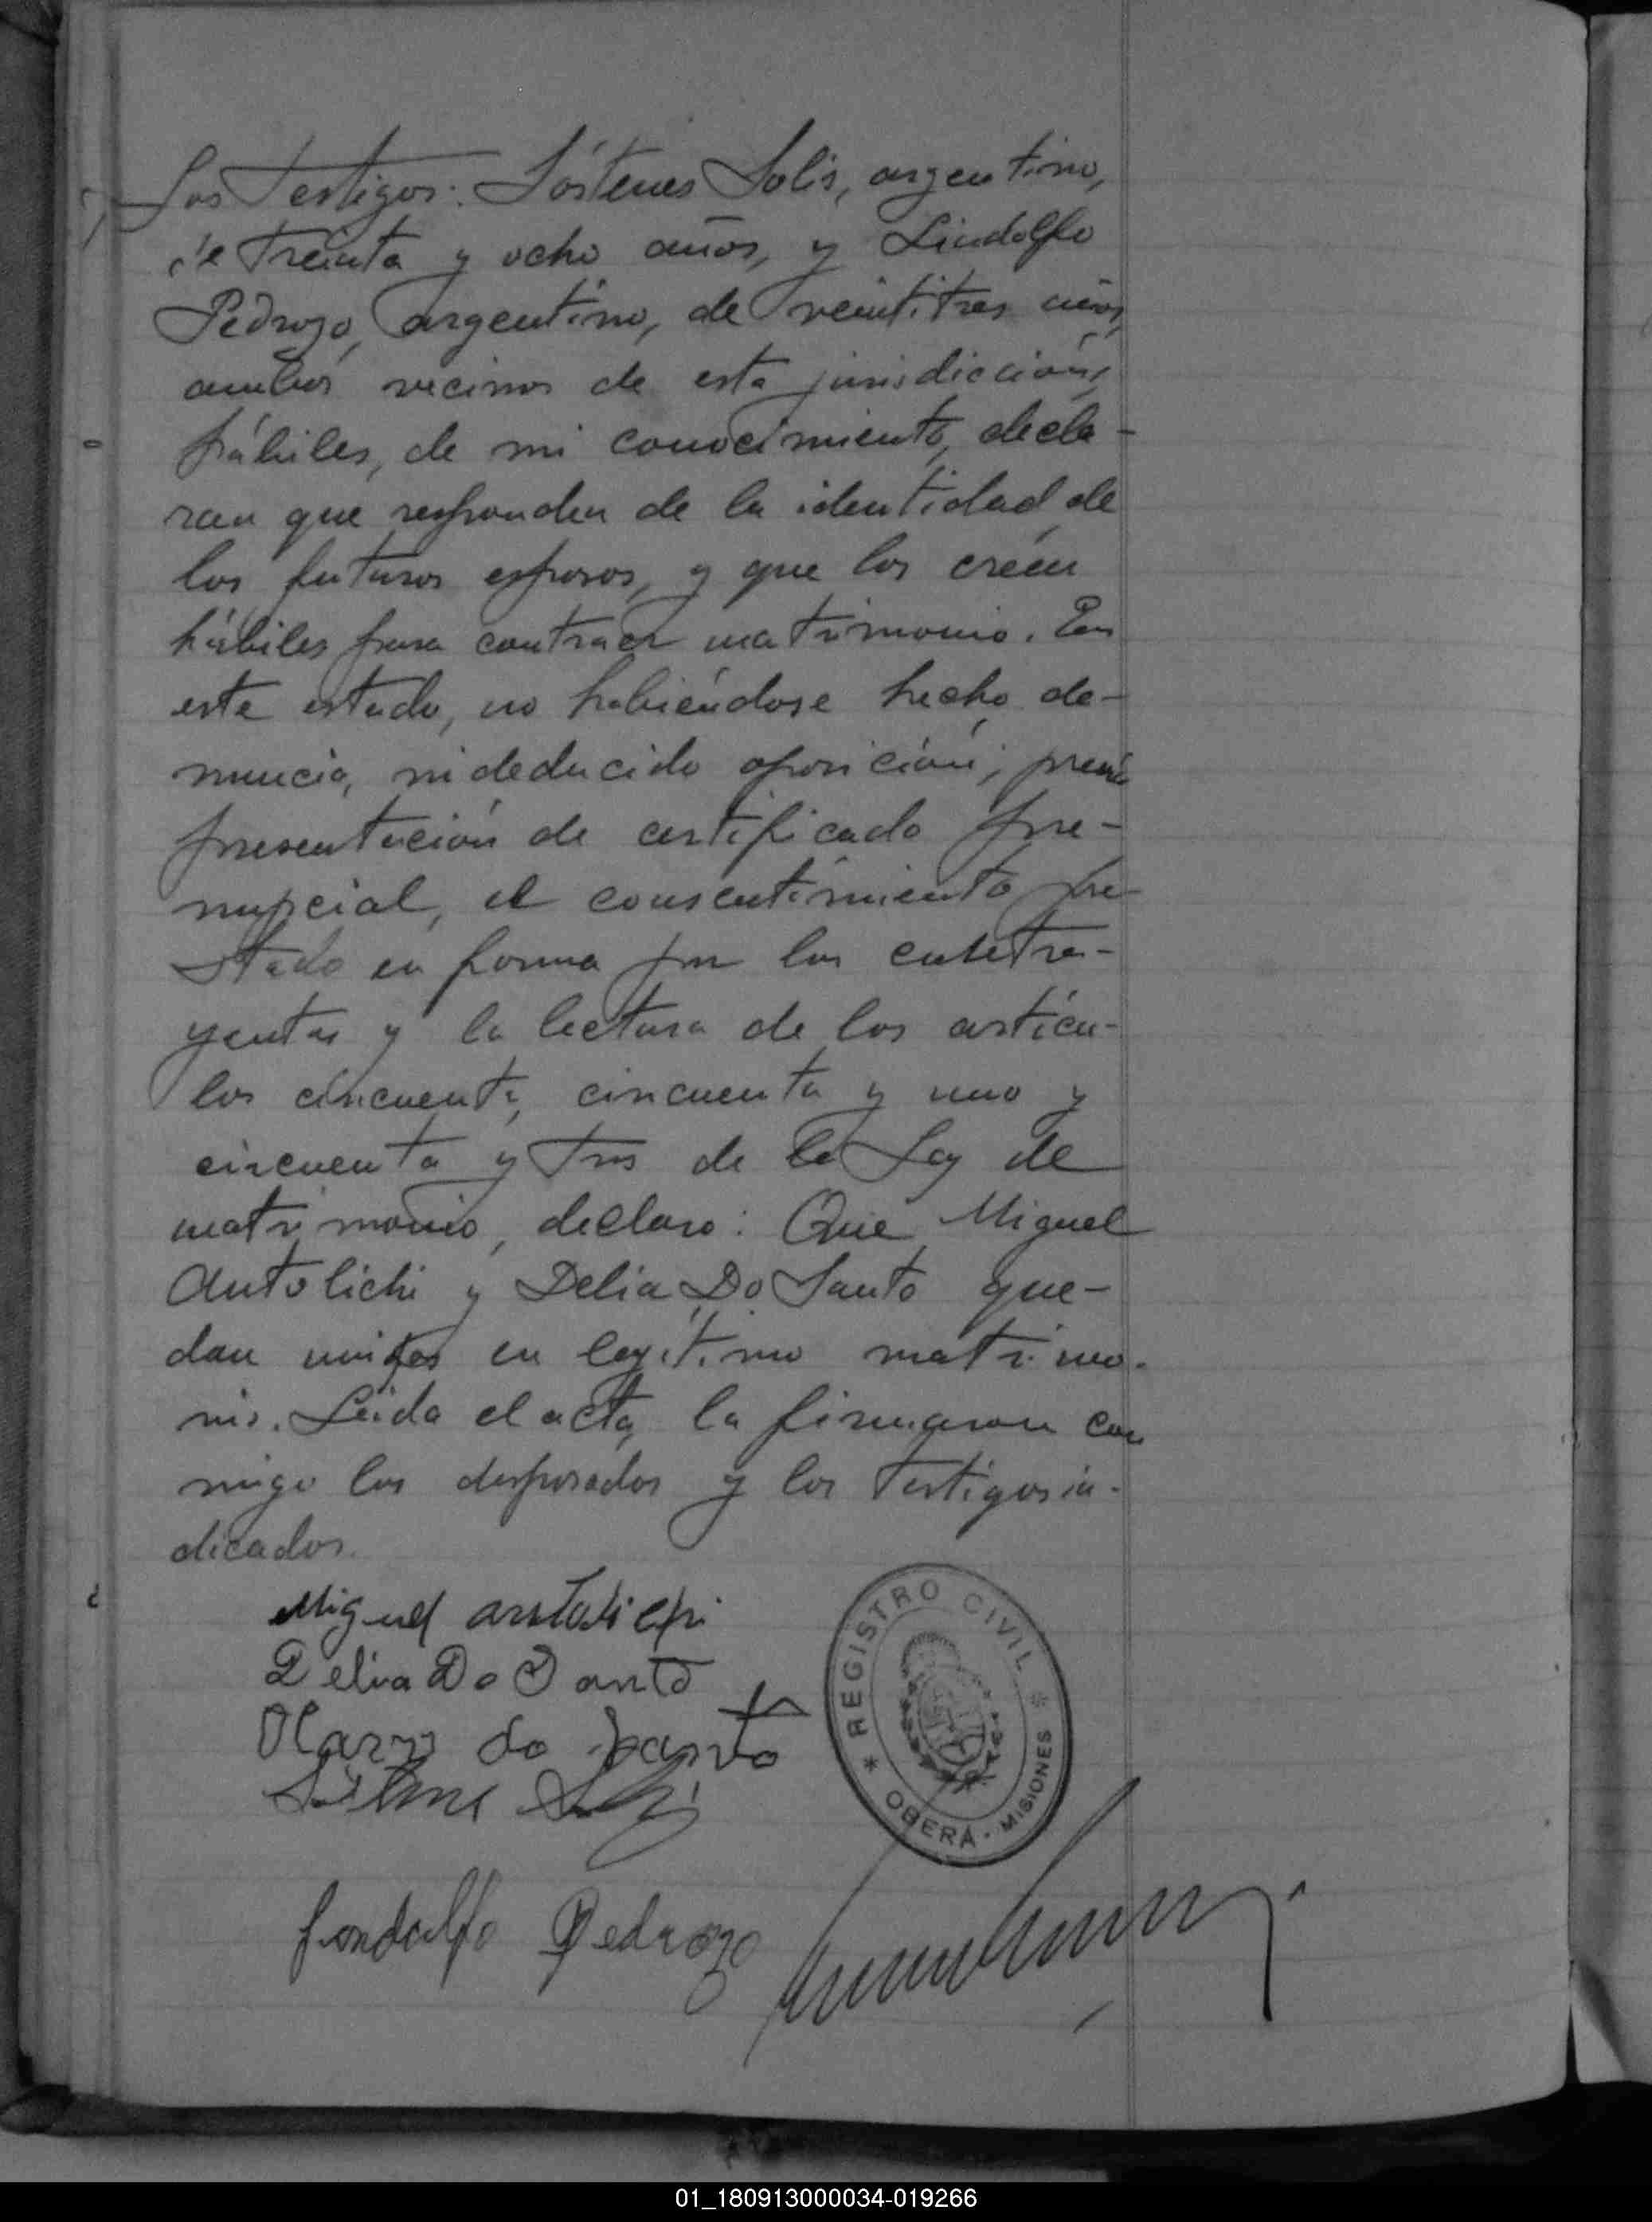 Los Testigos: Sóstenes Solis, argentino,
de treinta y ocho años, y Lindolfo
Pedrozo, argentino, de veintitres años,
ambos vecinos de esta jurisdicción,
hábiles, de mi conocimiento, decla-
ran que responden de la identidad de
los futuros esposos, y que los créen
hábiles para contraer matrimonio. En
este estado, no habiéndose hecho de-
nuncia, ni deducido oposición, previa
presentación de certificado pre-
nupcial, el consentimiento pre-
stado en forma por los contra-
yentes y la lectura de los artícu-
los cincuenta, cincuenta y uno y
cincuenta y tres de la Ley de
matrimonio, declaro: Que Miguel
Antolichi y Delia Do Santo que-
dan unidos en legítimo matrimo-
nio. Leida el acta, la firmaron con
migo los desposados y los testigos in-
dicados.
Miguel antolichi
Delia Do Santo
do Santo
Lendolfo Pedrozo
* REGISTRO CIVIL *
OBERÁ - MISIONES
01_180913000034-019266